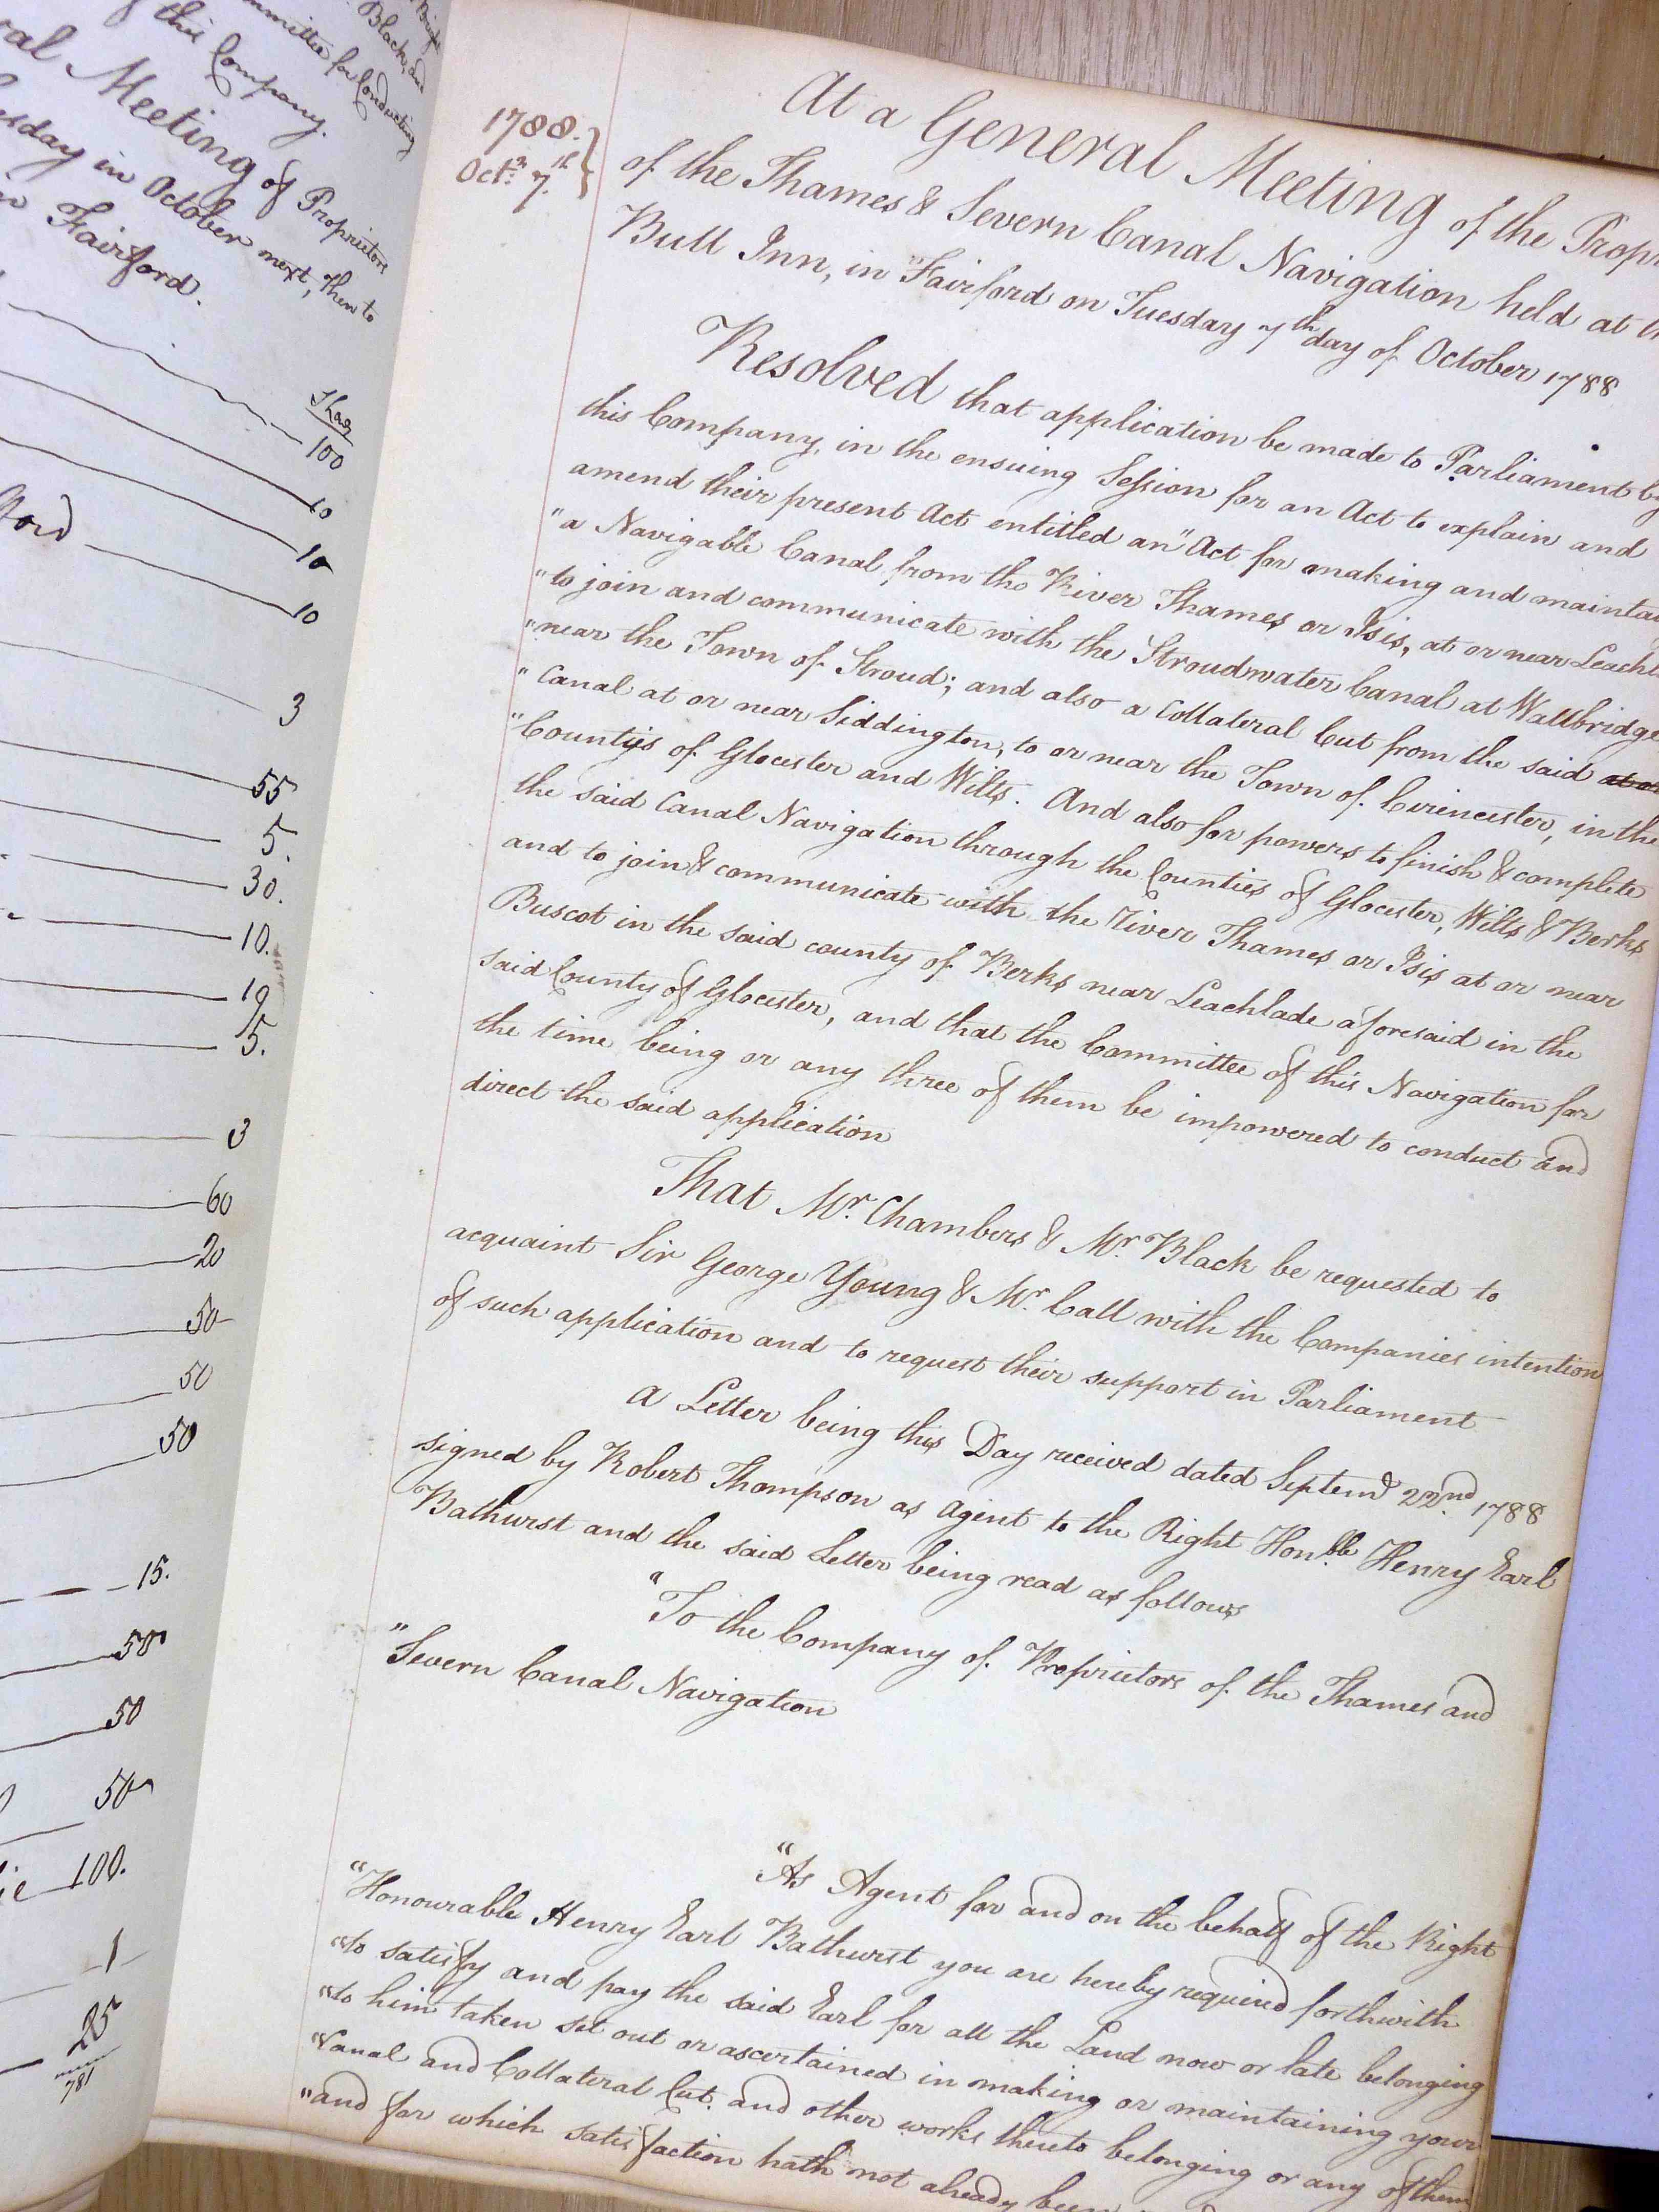 this Company.
Committee for Conducting
Black, and
Meeting of Proprietors
in October next, then to
Fairford.
Shas
100
10
10
10
3
55
5.
30.
10.
10
5.
3
60
20
50
50
50
15.
50
50
50
100.
1
25
781
1788.
Octr. 7th.
At a General Meeting of the
of the Thames & Severn Canal Navigation held at
Bull Inn, in Fairford on Tuesday 7th day of October 1788
Resolved that application be made to Parliament by
this Company, in the ensuing Session for an Act to explain and
amend their present Act entitled an "Act for making and
"a Navigable Canal from the River Thames or Isis, at or near
"to join and communicate with the Stroudwater Canal at Wallbridge
"near the Town of Stroud; and also a Collateral Cut from the said
"Canal at or near Siddington, to or near the Town of Cirencester, in the
"Countys of Glocester and Wilts. And also for powers to finish & complete
the said Canal Navigation through the Counties of Glocester, Wilts & Berks
and to join & communicate with the River Thames or Isis at or near
Buscot in the said county of Berks near Leachlade aforesaid in the
said County of Glocester, and that the Committee of this Navigation for
the time being or any three of them be impowered to conduct and
direct the said application
That Mr. Chambers & Mr. Black be requested to
acquaint Sir George Young & Mr. Call with the Companies intention
of such application and to request their support in Parliament
A Letter being this Day received dated Septemr 22nd. 1788
signed by Robert Thompson as Agent to the Right Hon.ble Henry Earl
Bathurst and the said Letter being read as follows
"To the Company of Proprietors of the Thames and
"Severn Canal Navigation
"As Agent for and on the behalf of the Right
"Honourable Henry Earl Bathurst you are hereby required forthwith
"to satisfy and pay the said Earl for all the Land now or late belonging
"to him taken set out or ascertained in making or maintaining your
"Canal and Collateral Cut. and other works thereto belonging or any of them
"and for which satisfaction hath not already been